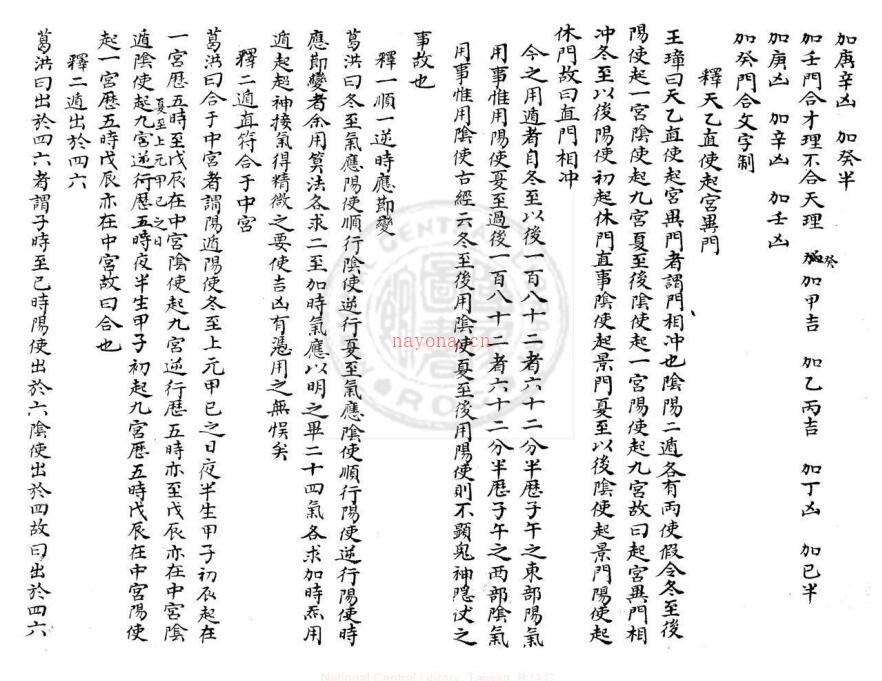 加庚辛凶　加癸半
加壬門合才理不合天理　加癸加甲吉　加乙丙吉　加丁凶　加已半
加庚凶　加辛凶　加壬凶
加癸門合文字制
釋天乙直使起宮異門
王璋曰天乙直使起宮異門者謂門相冲也陰陽二遁各有两使假令冬至後
陽使起一宮陰使起九宮夏至後陰使起一宮陽使起九宮故曰起宮異門相
冲冬至以後陽使初起休門直事陰使起景門夏至以後陰使起景門陽使起
休門故曰直門相冲
今之用遁者自冬至以後一百八十二者六十二分半歷子午之東部陽氣
用事惟用陽使夏至過後一百八十二者六十二分半歷子午之西部陰氣
用事惟用陰使古經云冬至後用陰使夏至後用陽使則不顕鬼神隐伏之
事故也
釋一順一逆時應節變
葛洪曰冬至氣應陽使順行陰使逆行夏至氣應陰使順行陽使逆行陽使時
應節變者余用算法各求二至加時氣應以明之畢二十四氣各求加時炁用
遁起超神接氣得精微之要使吉凶有憑用之無悮矣
釋二遁直符合于中宮
葛洪曰合于中宮者謂陽遁陽使冬至上元甲已之日夜半生甲子初辰起在
一宮歷五時至戊辰在中宮陰使起九宮逆行歷五時亦至戊辰亦在中宮陰
遁陰使夏至上元甲已之日起九宮逆行歷五時夜半生甲子初起九宮歷五時戊辰在中宮陽使
起一宮歷五時戊辰亦在中宮故曰合也
釋二遁出於四六
葛洪曰出於四六者謂子時至已時陽使出於六陰使出於四故曰出於四六
nayona.cn
National Central Library, Taiwan, R.O.C